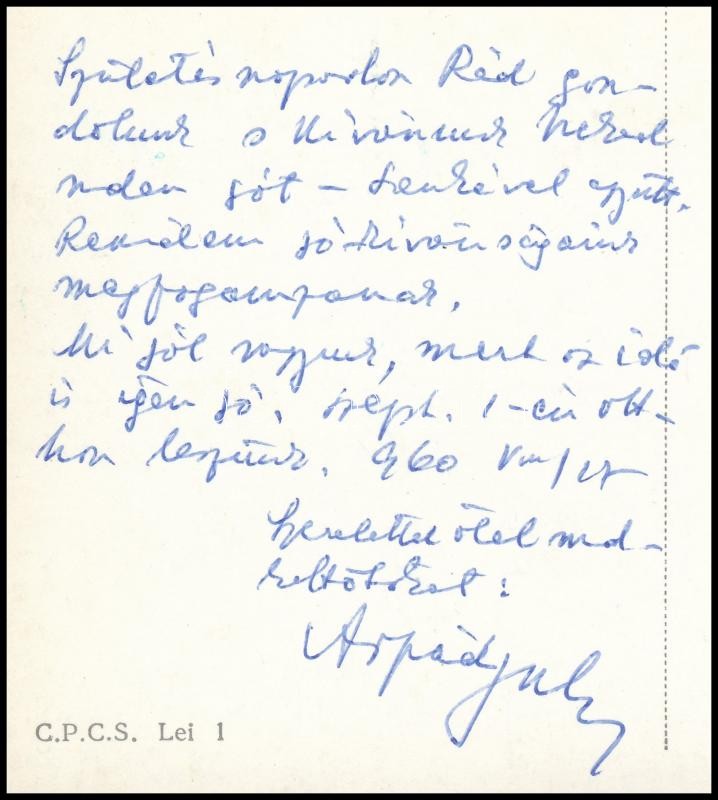 Születésnapodon Rád gon-
dolunk s kívánunk Neked
minden jót – Lenkével együtt.
Remélem jókívánságaink
megfogamzanak.
Mi jól vagyunk, mert az idő
is igen jó. szept. 1-én ott-
hon leszünk. 960 VIII/17
Szeretettel ölel mind-
kettőtöket:
Árpád
C.P.C.S. Lei 1